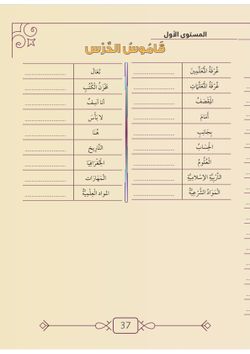 المستوى الأول
قَامُوسُ الدَّرْسِ
غُرْفَةُ الْمُعَلِّمِينَ
غُرْفَةُ الْمُعَلِّمَاتِ
الْمَقْصَفُ
أَمَامَ
بِجَانِبِ
الْحِسَابُ
الْعُلُومُ
التَّرْبِيَةُ الْإِسْلَامِيَّةُ
الْمَوَادُ الشَّرْعِيَّةُ
تَعَالَ
مَخْزَنُ الْكُتُبِ
أَنَا آسِفٌ
لَا بَأْسَ
هُنَا
التَّارِيخُ
الْجُغْرَافِيَا
الْمَهَارَات
المواد الْعِلْمِيَّةُ
37